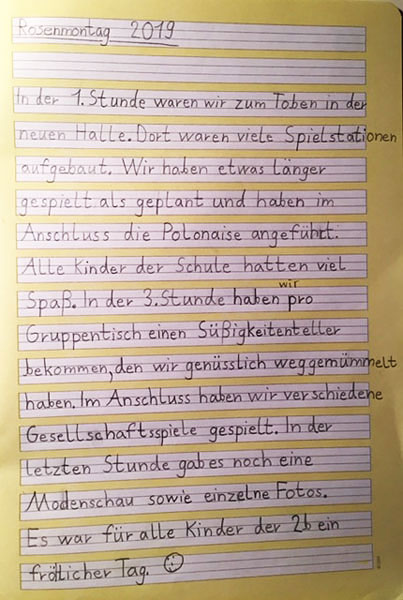 Rosenmontag 2019
In der 1. Stunde waren wir zum Toben in der
neuen Halle. Dort waren viele Spielstationen
aufgebaut. Wir haben etwas länger
gespielt als geplant und haben im
Anschluss die Polonaise angeführt.
Alle Kinder der Schule hatten viel
Spaß. In der 3. Stunde haben wir pro
Gruppentisch einen Süßigkeitenteller
bekommen, den wir genüsslich weggemümmelt
haben. Im Anschluss haben wir verschiedene
Gesellschaftsspiele gespielt. In der
letzten Stunde gab es noch eine
Modenschau sowie einzelne Fotos.
Es war für alle Kinder der 2b ein
fröhlicher Tag.